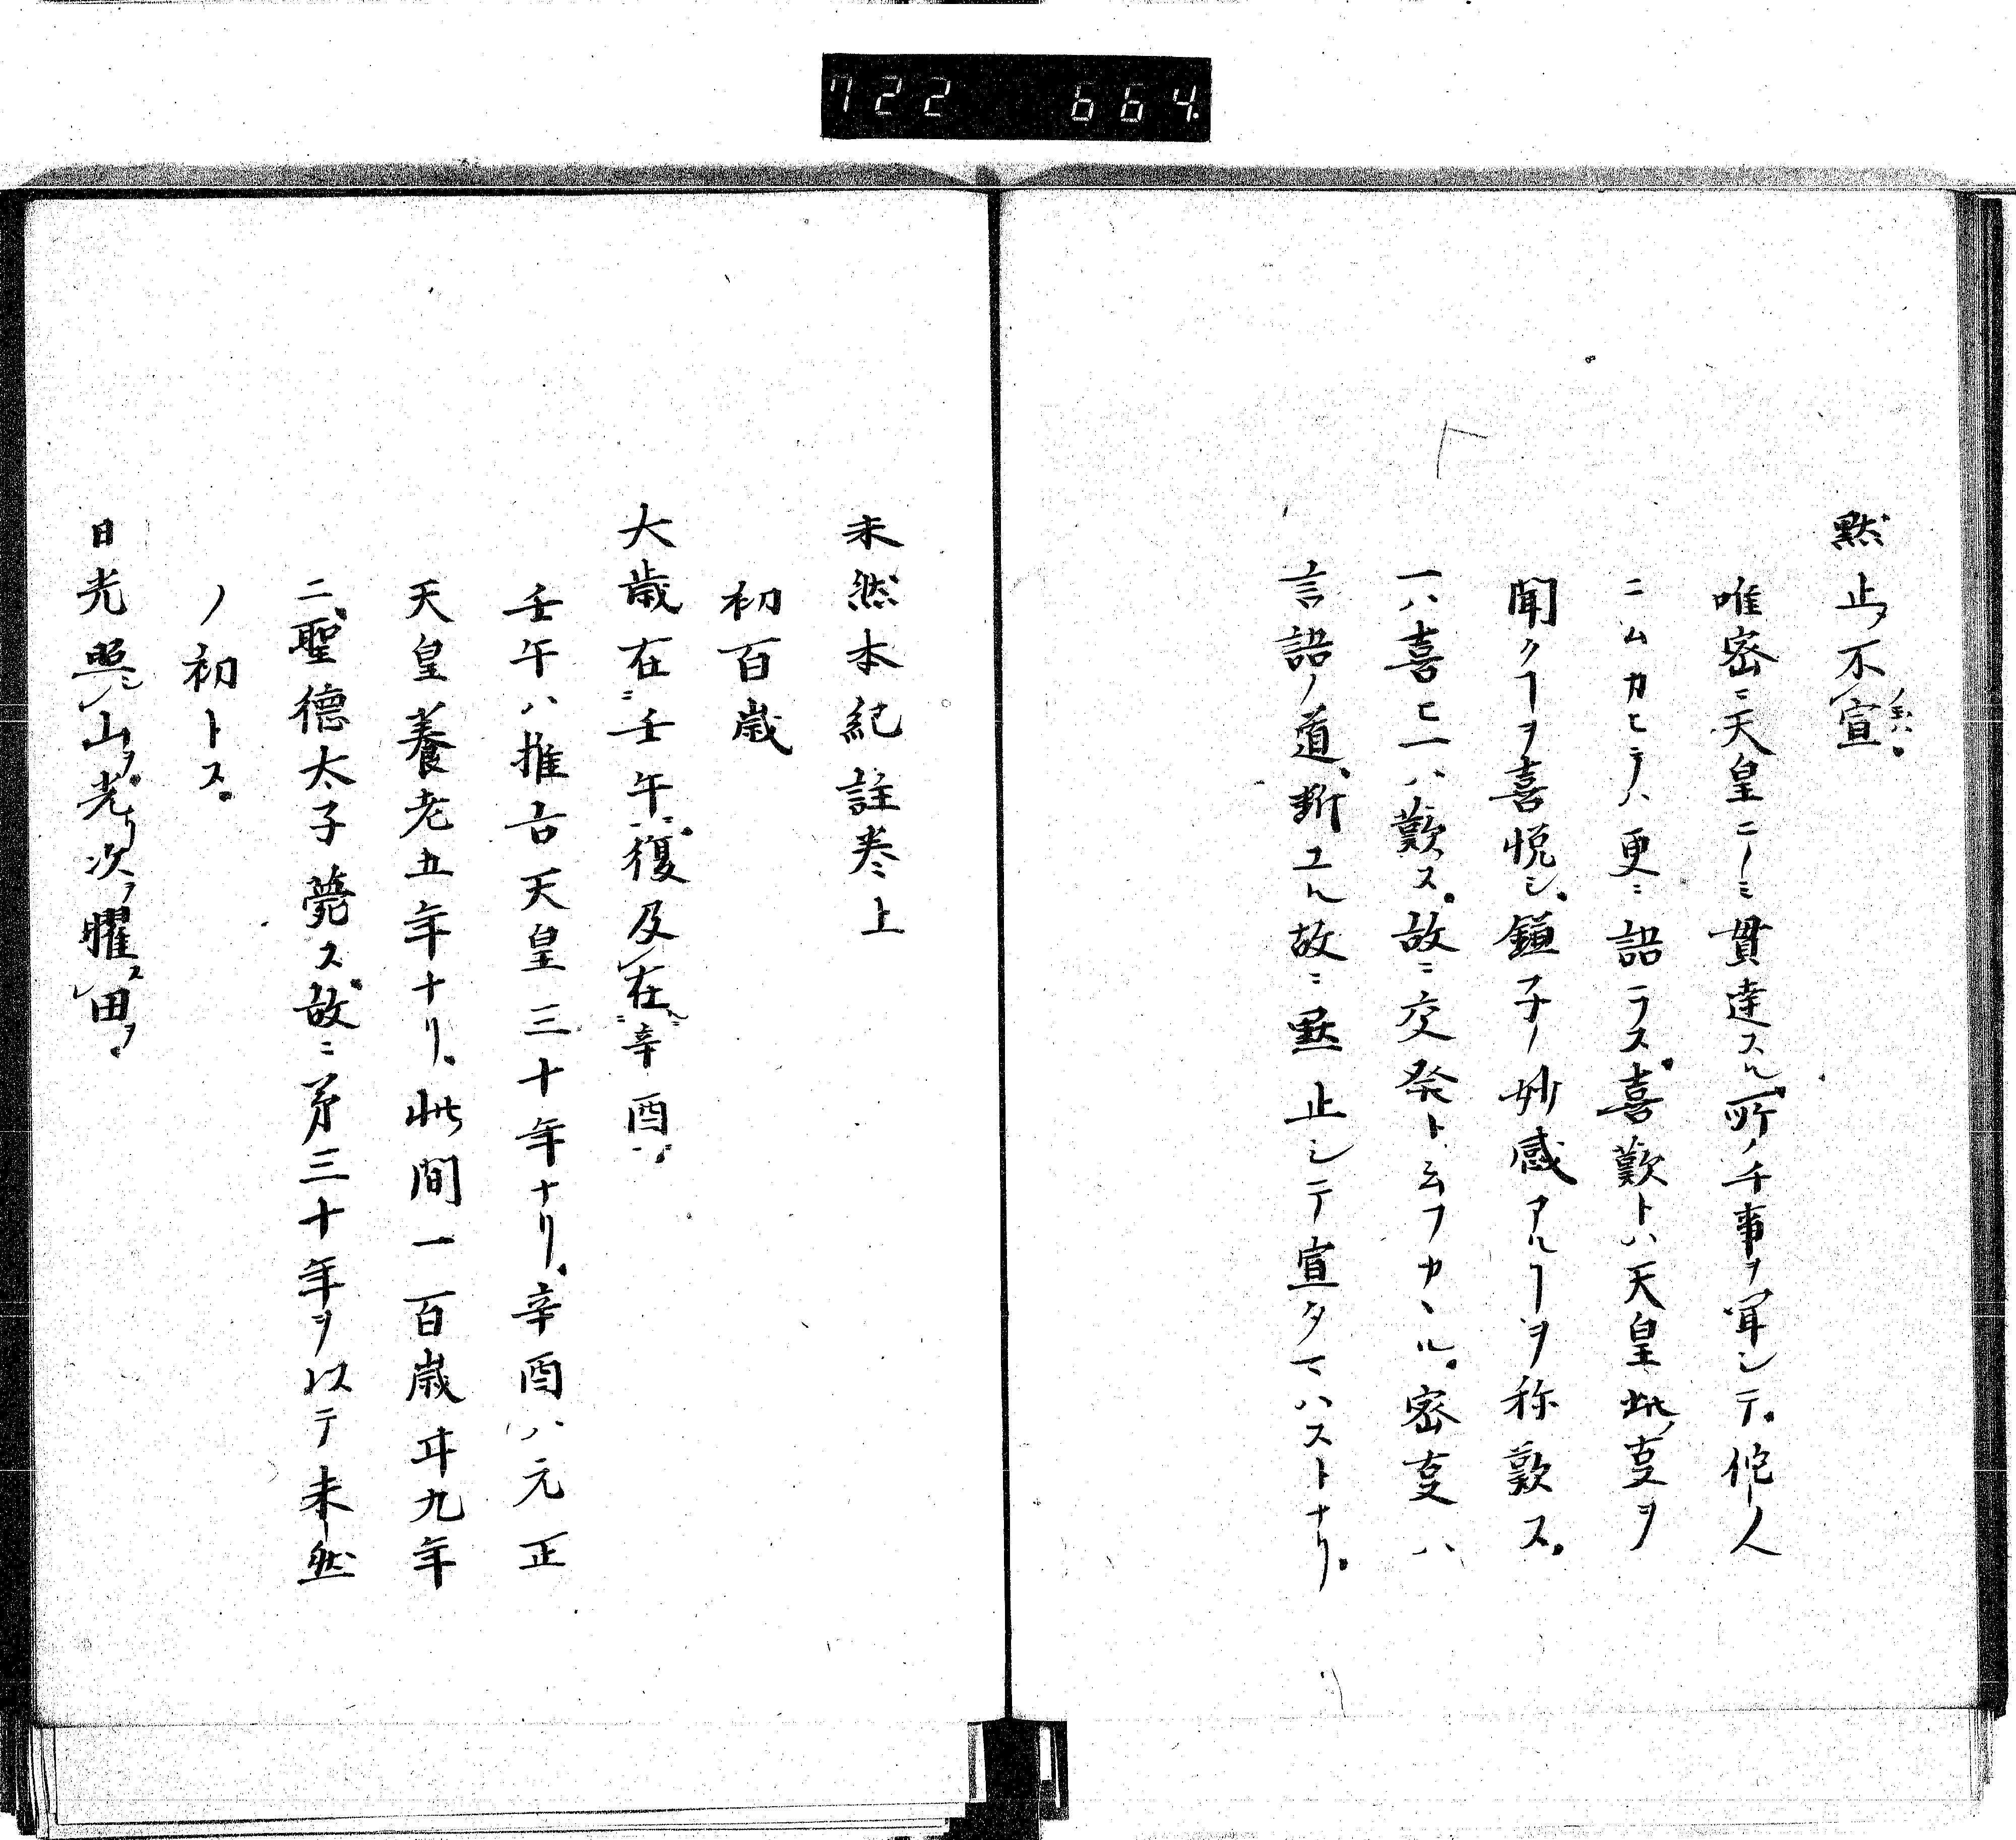 722 664
黙止タ不宣
唯密ニ天皇ニノミ貫達スル所ノ千事ヲ
ニムカヒテハ更ニ語ラス。喜歎トハ天皇此ノ叓ヲ
聞クヿヲ喜悦シ。鎌子ノ妙感アルヿヲ称歎ス。
一ハ喜ヒ一ハ歎ス。故ニ交発ト云フカヽル。密叓ハ
言語ノ道断ユル故ニ黙止シテ宣タマハストナリ。
未然本紀註巻上
初百歳
大歳在ニ壬午ニ。復及在ルニ辛酉ニ。
壬午ハ推古天皇三十年ナリ。辛酉ハ元正
天皇養老五年ナリ。此間一百歳廾九年
ニ聖徳太子薨ス。故ニ第三十年ヲ以テ未然
ノ初トス。
日光照シ山ヲ。光リ次ヲ曜ス田ヲ。